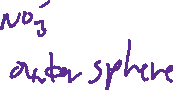 NO₃⁻
outer sphere